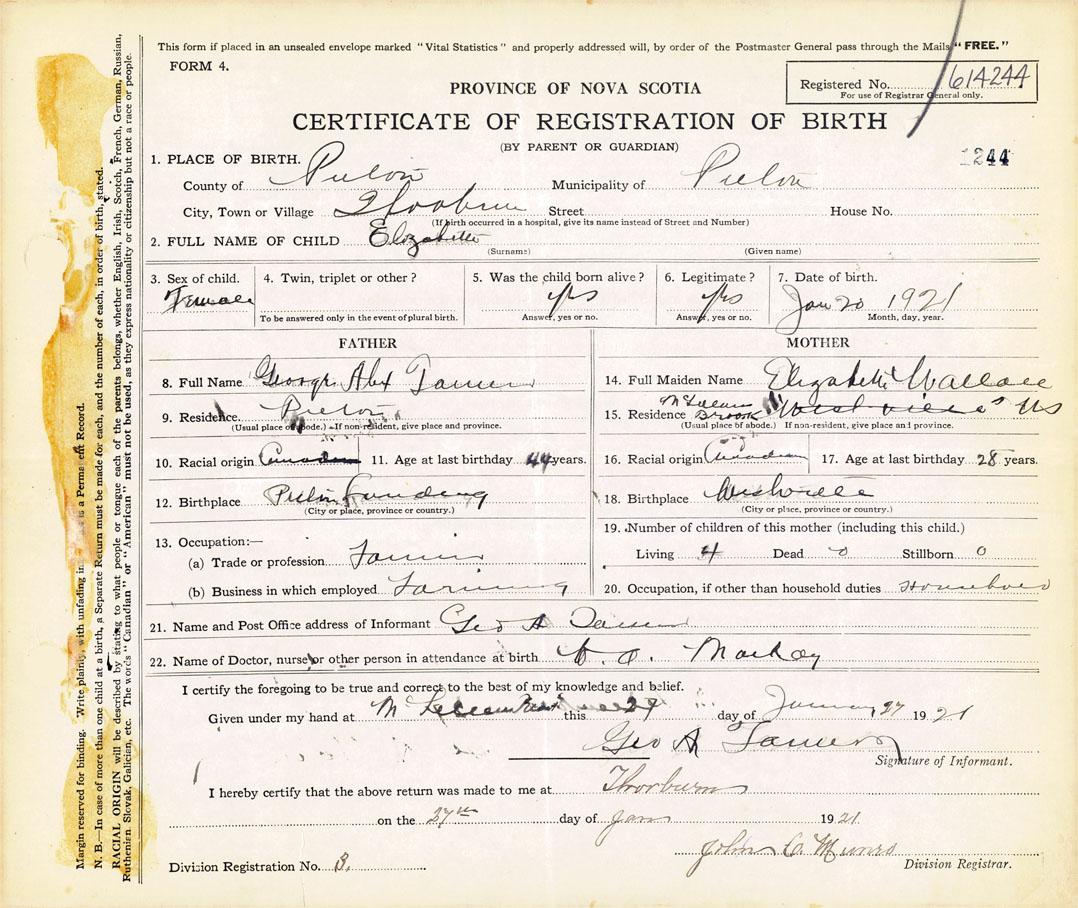 This form if placed in an unsealed envelope marked "Vital Statistics" and properly addressed will, by order of the Postmaster General pass through the Mails "FREE."
FORM 4.
Registered No. 614244
For use of Registrar General only.
PROVINCE OF NOVA SCOTIA
CERTIFICATE OF REGISTRATION OF BIRTH
(BY PARENT OR GUARDIAN)
1244
1. PLACE OF BIRTH.
County of Pictou Municipality of Pictou
City, Town or Village Street House No.
(If birth occurred in a hospital, give its name instead of Street and Number)
2. FULL NAME OF CHILD Elizabeth
(Surname) (Given name)
3. Sex of child. 4. Twin, triplet or other? 5. Was the child born alive? 6. Legitimate? 7. Date of birth.
Female yes yes Jan 20 1921
To be answered only in the event of plural birth. Answer, yes or no. Answer, yes or no. Month, day, year.
FATHER
8. Full Name George Alex
9. Residence Pictou
(Usual place of abode.) If non-resident, give place and province.
10. Racial origin Canadian 11. Age at last birthday 44 years.
12. Birthplace Pictou Landing
(City or place, province or country.)
13. Occupation:—
(a) Trade or profession
(b) Business in which employed Farming
MOTHER
14. Full Maiden Name Elizabeth Wallace
15. Residence Brook "Westville" NS
(Usual place of abode.) If non-resident, give place and province.
16. Racial origin Canadian 17. Age at last birthday 28 years.
18. Birthplace Westville
(City or place, province or country.)
19. Number of children of this mother (including this child.)
Living 4 Dead 0 Stillborn 0
20. Occupation, if other than household duties
21. Name and Post Office address of Informant Geo A
22. Name of Doctor, nurse or other person in attendance at birth MacKay
I certify the foregoing to be true and correct to the best of my knowledge and belief.
Given under my hand at this 27 day of January 27 1921
Geo A
Signature of Informant.
I hereby certify that the above return was made to me at Thorburn
on the 27th day of Jan 1921
John C. Munro
Division Registration No. 8. Division Registrar.
Margin reserved for binding. Write plainly, with unfading in is a Permanent Record.
N. B.—In case of more than one child at a birth, a Separate Return must be made for each, and the number of each, in order of birth, stated.
RACIAL ORIGIN will be described by stating to what people or tongue each of the parents belongs, whether English, Irish, Scotch, French, German, Russian,
Ruthenian, Slovak, Galician, etc. The words "Canadian" or "American" must not be used, as they express nationality or citizenship but not a race or people.